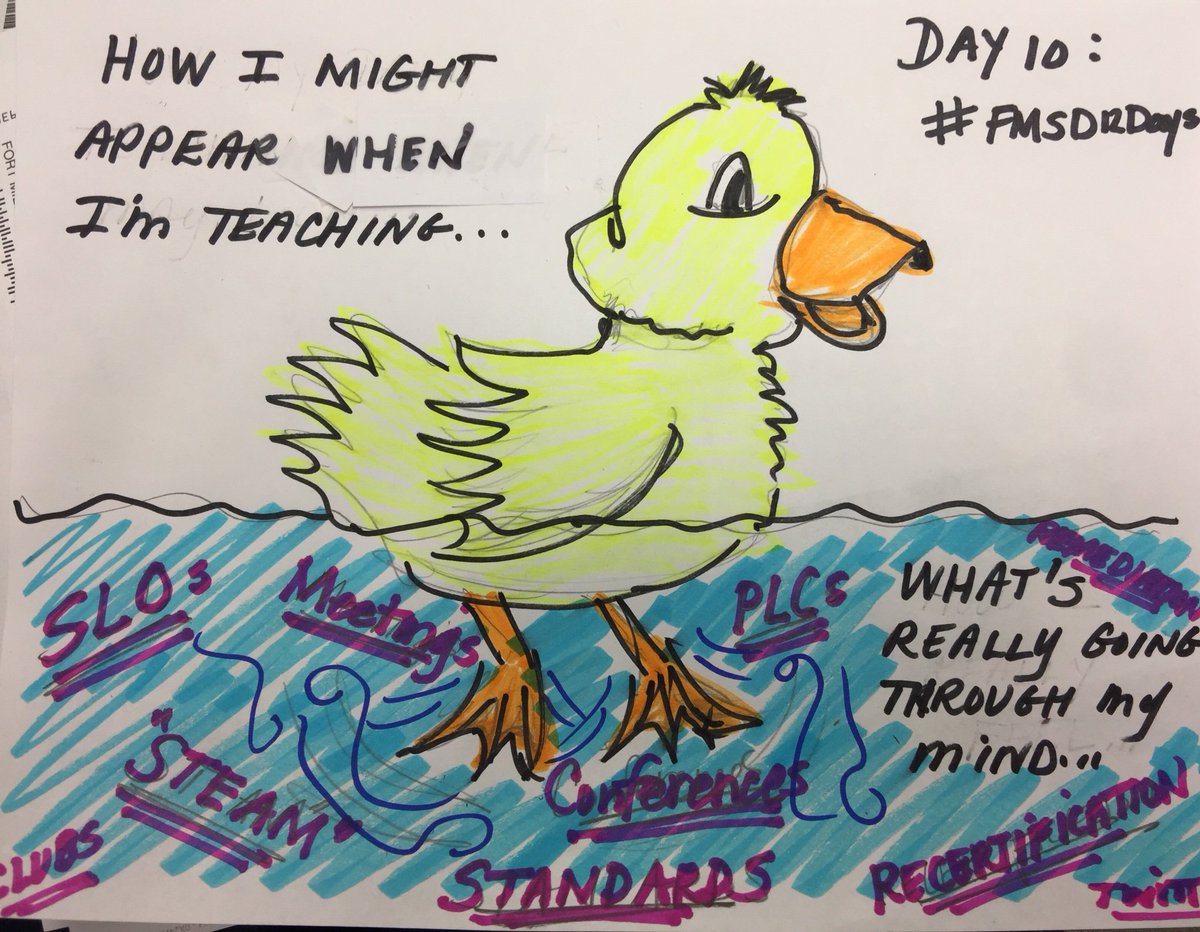 HOW I MIGHT
APPEAR WHEN
I'm TEACHING...
DAY 10:
#FMSDRDays
SLOs
Meetings
PLCs
WHAT'S
REALLY GOING
THROUGH my
MIND...
"STEAM"
Conferences
CLUBS
STANDARDS
RECERTIFICATION